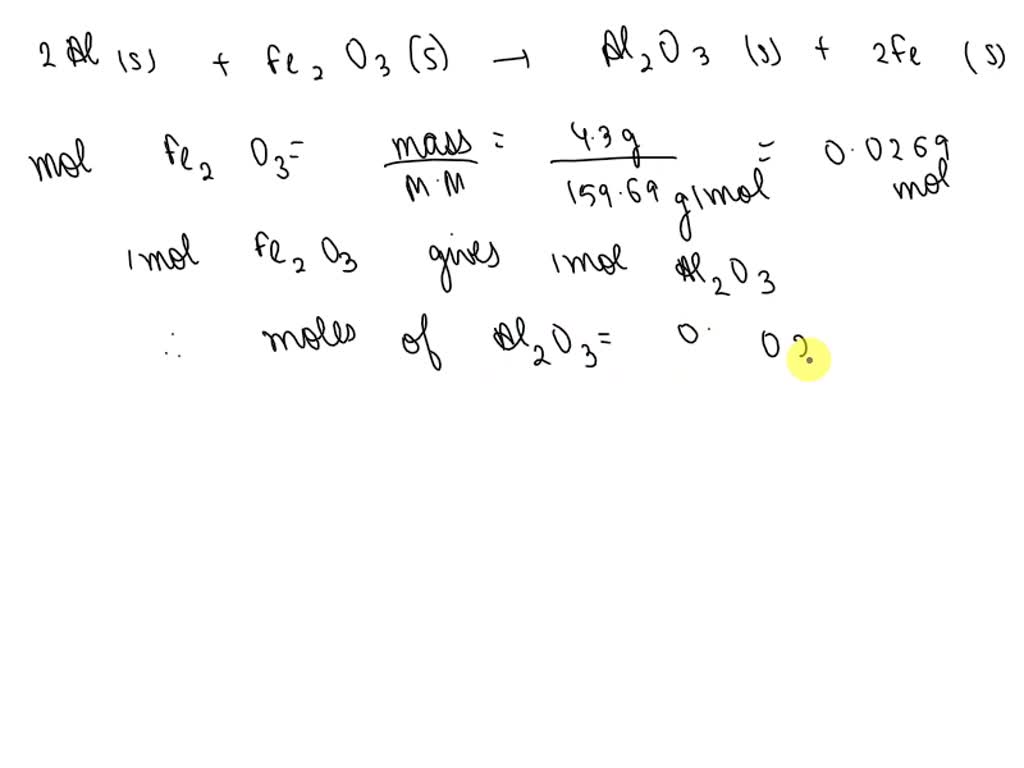 2Al (s) + Fe2O3 (s) → Al2O3 (s) + 2Fe (s)
mol Fe2O3 = mass / M.M = 4.3g / 159.69 g/mol = 0.0269 mol
1mol Fe2O3 gives 1mol Al2O3
∴ moles of Al2O3 = 0. 02